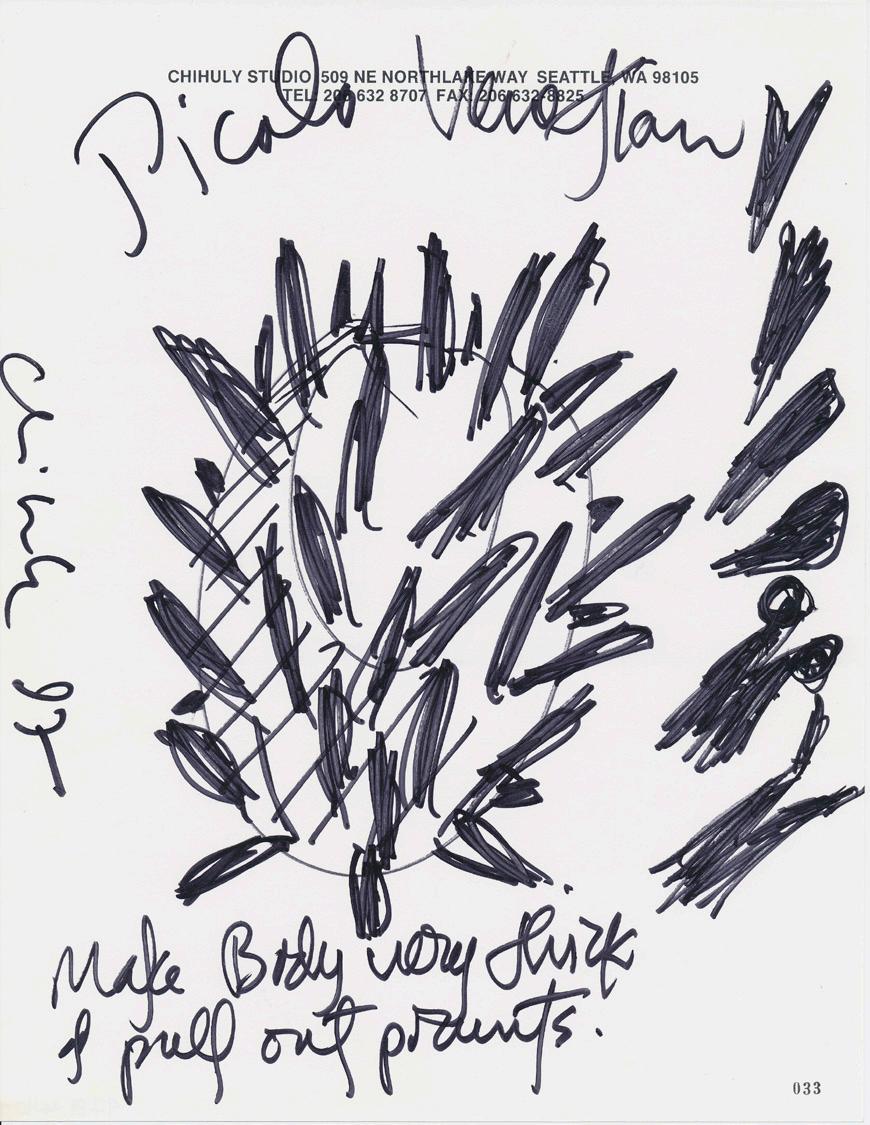 CHIHULY STUDIO 509 NE NORTHLAKE WAY SEATTLE, WA 98105
TEL: 206 632 8707 FAX: 206-632-8825
Picolo Venetian
Chihuly 97
Make Body very thick
& pull out points.
033